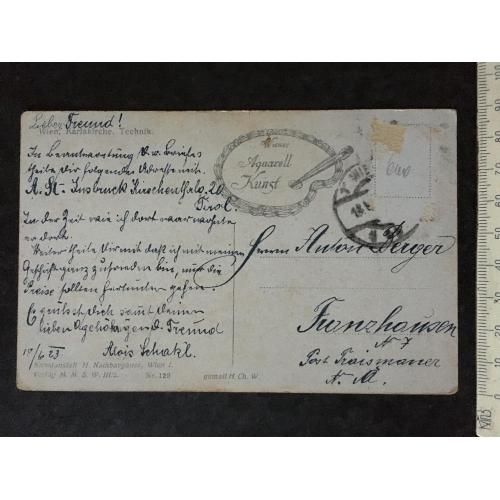 Lieber Freund!
Wien, Karlskirche, Technik.
In Beantwortung d. w. Briefes
theile dir folgendes Adresse mit.
A. St. Insbruck Kirschenthalg. 20
Tirol.
In der Zeit wie ich dort war wohnte
er dort.
Weiter theile dir mit daß ich mit meinen
Geschäft ganz zufrieden bin, nur die
Preise sollten hinunter gehen.
Es grüßt dich samt deinen
lieben Angehörigen d. Freund
Alois Schakl.
17/6 23
Kunstanstalt H. Nachbargauer, Wien I.
Verlag M. M. S. W. III/2. Nr. 129
gemalt H. Ch. W.
Wiener
Aquarell
Kunst
WIEN
Herrn Anton Berger
Franzhausen
N 7
Post Traismauer
N. Ö.